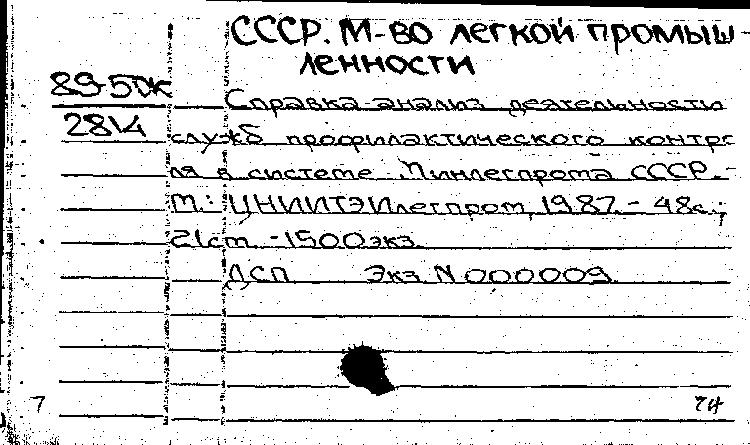 СССР. М-во легкой промыш-
ленности
89-5ДК
Справка-анализ деятельности
28\4
служб профилактического контро
ля в системе Минлегпрома СССР.-
М.: ЦНИИТЭИлегпром, 1987.- 48с.;
21см. -1500экз.
ДСП Экз. N 000009.
7